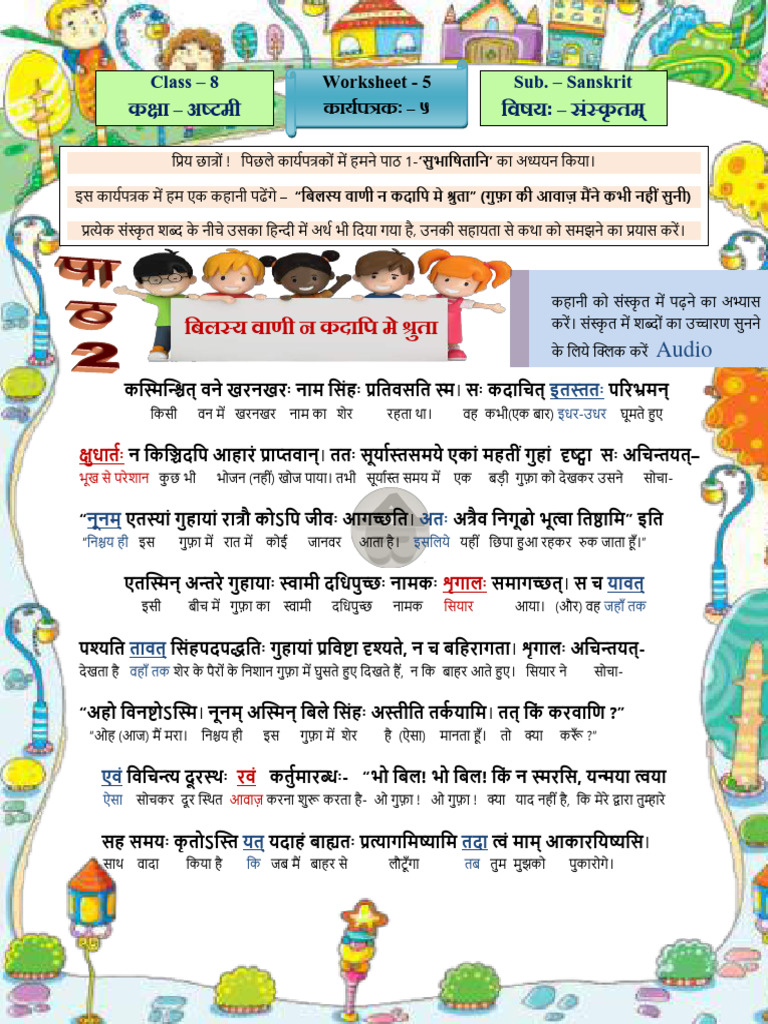 Class – 8
कक्षा – अष्टमी
Worksheet - 5
कार्यपत्रकः – ५
Sub. – Sanskrit
विषयः – संस्कृतम्
प्रिय छात्रों ! पिछले कार्यपत्रकों में हमने पाठ 1-'सुभाषितानि' का अध्ययन किया।
इस कार्यपत्रक में हम एक कहानी पढेंगे – "बिलस्य वाणी न कदापि मे श्रुता" (गुफ़ा की आवाज़ मैंने कभी नहीं सुनी)
प्रत्येक संस्कृत शब्द के नीचे उसका हिन्दी में अर्थ भी दिया गया है, उनकी सहायता से कथा को समझने का प्रयास करें।
पाठ 2
बिलस्य वाणी न कदापि मे श्रुता
कहानी को संस्कृत में पढ़ने का अभ्यास
करें। संस्कृत में शब्दों का उच्चारण सुनने
के लिये क्लिक करें Audio
कस्मिन्श्चित् वने खरनखरः नाम सिंहः प्रतिवसति स्म। सः कदाचित् इतस्ततः परिभ्रमन्
किसी वन में खरनखर नाम का शेर रहता था। वह कभी(एक बार) इधर-उधर घूमते हुए
क्षुधार्तः न किञ्चिदपि आहारं प्राप्तवान्। ततः सूर्यास्तसमये एकां महतीं गुहां दृष्ट्वा सः अचिन्तयत्–
भूख से परेशान कुछ भी भोजन (नहीं) खोज पाया। तभी सूर्यास्त समय में एक बड़ी गुफ़ा को देखकर उसने सोचा-
"नूनम् एतस्यां गुहायां रात्रौ कोऽपि जीवः आगच्छति। अतः अत्रैव निगूढो भूत्वा तिष्ठामि" इति
"निश्चय ही इस गुफ़ा में रात में कोई जानवर आता है। इसलिये यहीं छिपा हुआ रहकर रुक जाता हूँ।"
एतस्मिन् अन्तरे गुहायाः स्वामी दधिपुच्छः नामकः शृगालः समागच्छत्। स च यावत्
इसी बीच में गुफ़ा का स्वामी दधिपुच्छ नामक सियार आया। (और) वह जहाँ तक
पश्यति तावत् सिंहपदपद्धतिः गुहायां प्रविष्टा दृश्यते, न च बहिरागता। शृगालः अचिन्तयत्-
देखता है वहाँ तक शेर के पैरों के निशान गुफ़ा में घुसते हुए दिखते हैं, न कि बाहर आते हुए। सियार ने सोचा-
"अहो विनष्टोऽस्मि। नूनम् अस्मिन् बिले सिंहः अस्तीति तर्कयामि। तत् किं करवाणि ?"
"ओह (आज) मैं मरा। निश्चय ही इस गुफ़ा में शेर है (ऐसा) मानता हूँ। तो क्या करूँ ?"
एवं विचिन्त्य दूरस्थः रवं कर्तुमारब्धः- "भो बिल! भो बिल! किं न स्मरसि, यन्मया त्वया
ऐसा सोचकर दूर स्थित आवाज़ करना शुरू करता है- ओ गुफ़ा ! ओ गुफ़ा ! क्या याद नहीं है, कि मेरे द्वारा तुम्हारे
सह समयः कृतोऽस्ति यत् यदाहं बाह्यतः प्रत्यागमिष्यामि तदा त्वं माम् आकारयिष्यसि।
साथ वादा किया है कि जब मैं बाहर से लौटूँगा तब तुम मुझको पुकारोगे।